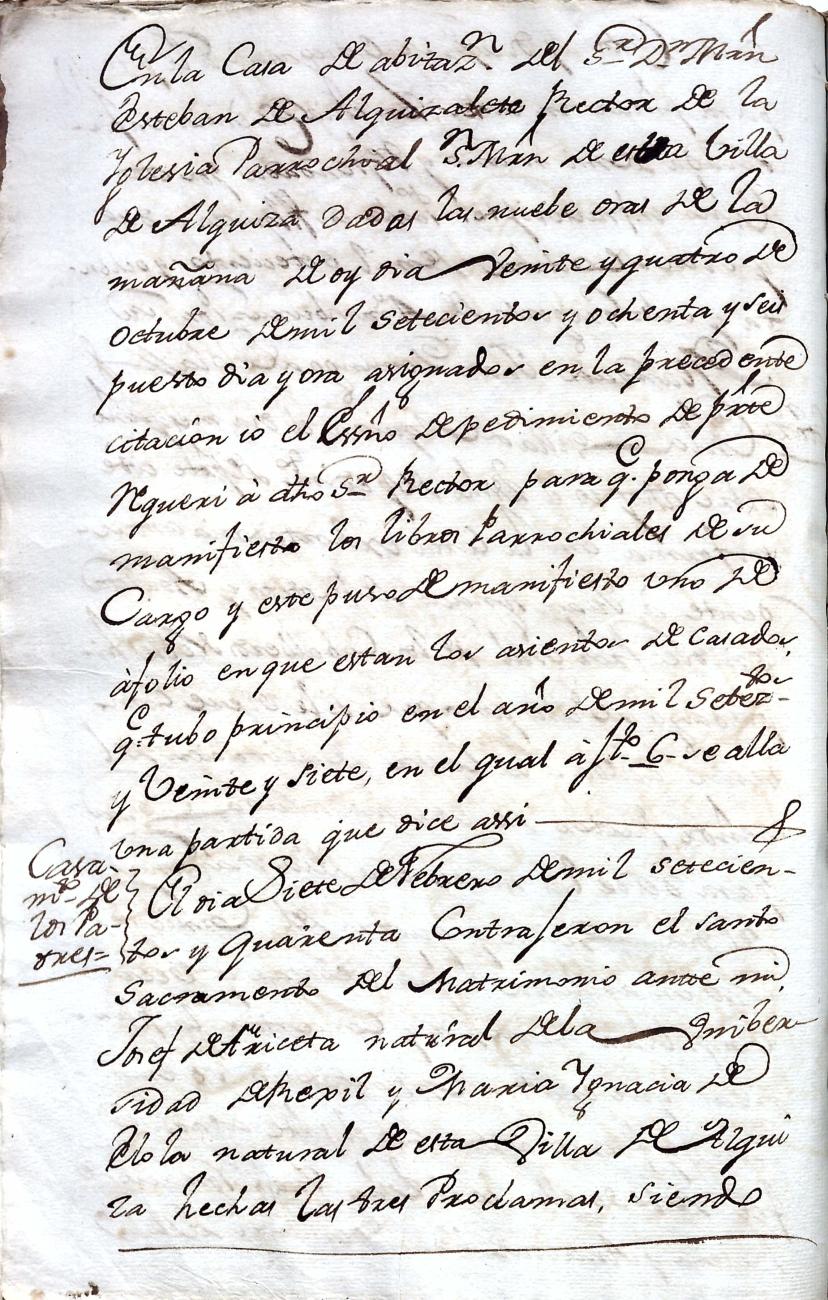 En la Casa de abitazn. del Sr. Dn. Mrn
Esteban de Alquizalete Rector de la
Yglesia Parrochial Sn. Mrn de esta Villa
de Alquiza dadas las nuebe oras de la
mañana de oy dia Veinte y quatro de
Octubre de mil setecientos y ochenta y seis
puesto dia y ora asignados en la precedente
citacion io el Essno de pedimiento de prte
Rqueri à dho Sr. Rector para q.e ponga de
manifiesto los libros Parrochiales de su
Cargo y este puso de manifiesto uno de
à folio en que estan los asientos de Casados,
q.e tubo principio en el año de mil Setez.tos
y Veinte y siete, en el qual à flo. 6. se alla
una partida que dice assi
Casa-
mto. de
los Pa-
dres=
El dia Siete de Febrero de mil setecien-
tos y quarenta Contrajeron el santo
Sacramento del Matrimonio ante mi
Josef de natural de la Vniber-
sidad de Rexil y Maria Ygnacia de
Elola natural de esta Villa de Alqui
za hechas las tres Proclamas, siendo